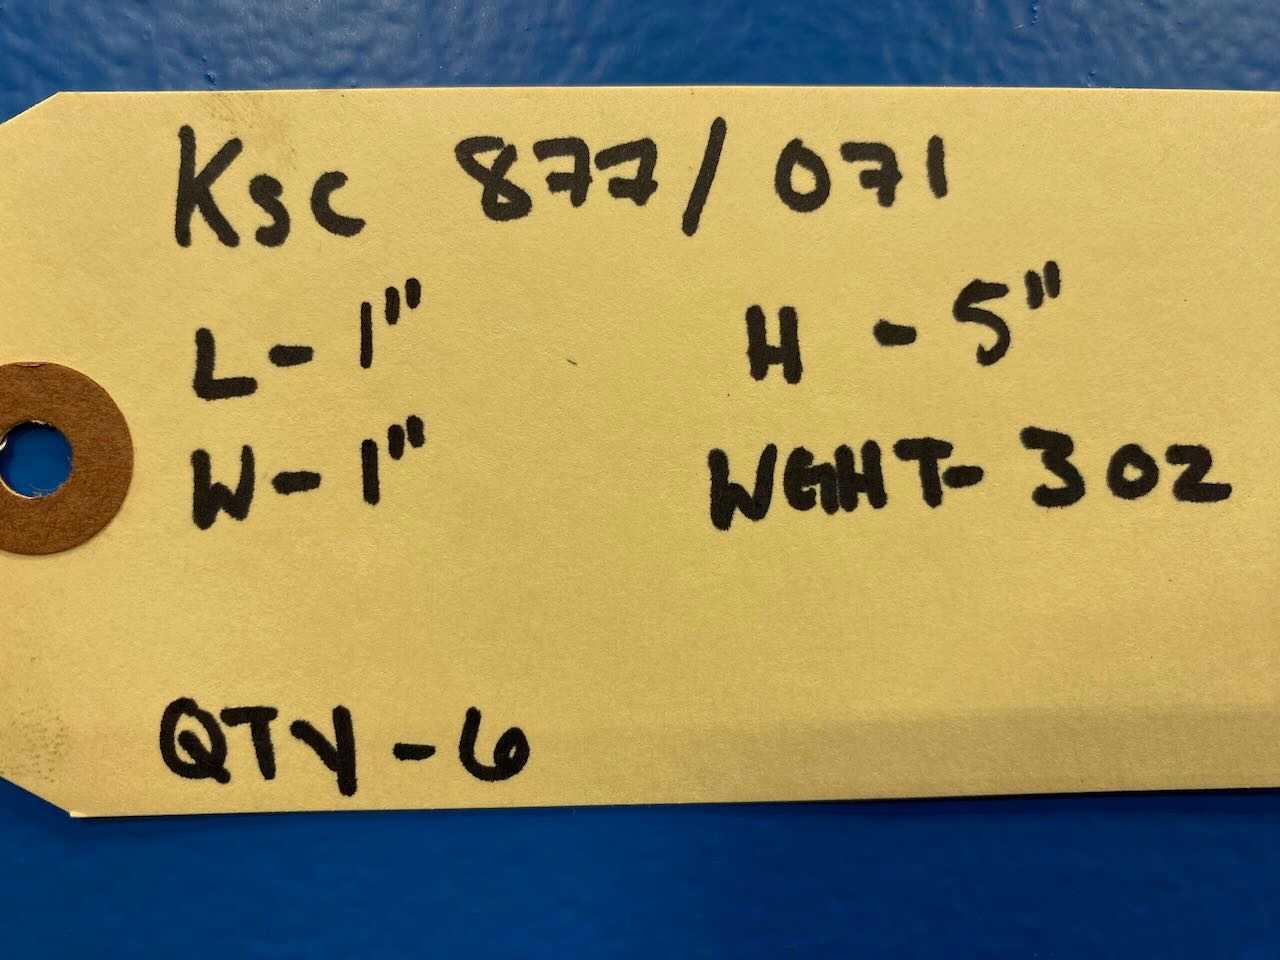 KSC 877/071
L-1" H - 5"
W-1" WGHT- 3 OZ
QTY-6